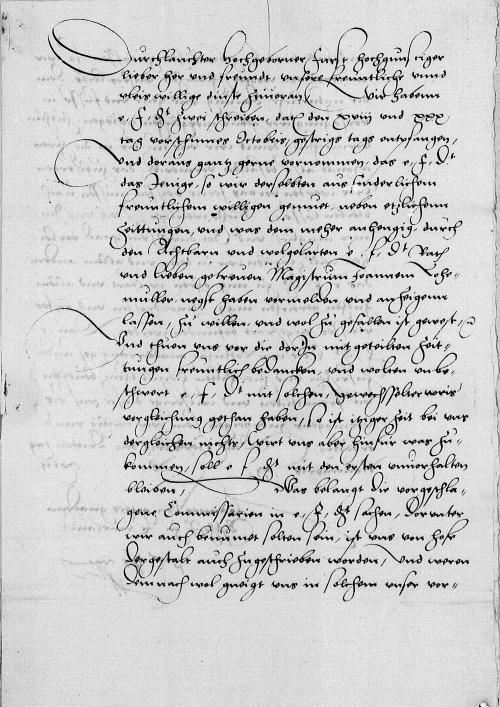 Durchlauchter Hochgeborner Furst, hochgunstiger
lieber her und freundt, unsere freuntliche unnd
vleis willige dinste zuvoran, Wir habenn
e. f. gt zwei schreiben, datz den xxviii und xxx
tag vorschinnes Octobris, gestrigs tags entpfangen,
Und doraus gantz gerne vornommen, das e. f. gt
das Jenige, so wir derselbten aus sunderlichem
freuntlichem willigen gemuet, neben etzlichenn
Zeittungen, und was dem meher anhengig, durch
den Achtbarn und wolgelarten e. f. gt Rath
und lieben getreuen Magistrum Joannem Lohe-
muller negst haben vormelden und anzeigenn
lassen, zu willen und wol zu gefallen ist gewest,
Und thuen uns vor die dorin mitgeteilten Zeit-
tungen freuntlich bedancken, und wolten unbe-
schwert e. f. gt mit solchen, gewechsselterweis
vorgleichung gethan haben, so ist itziger Zeit bei uns
dergleichen nichts, wirt uns aber hinfur was zu-
kommen, soll e. f. gt mit den ersten unvorhalten
bleiben, Was belangt die vorgeschla-
gene Commissarien in e. f. gt sachen, dorunter
wir auch benumet solten sein, ist uns von hofe
dergestalt auch zugeschrieben worden, Und weren
demnach wol gneigt uns in solchem unser vor-